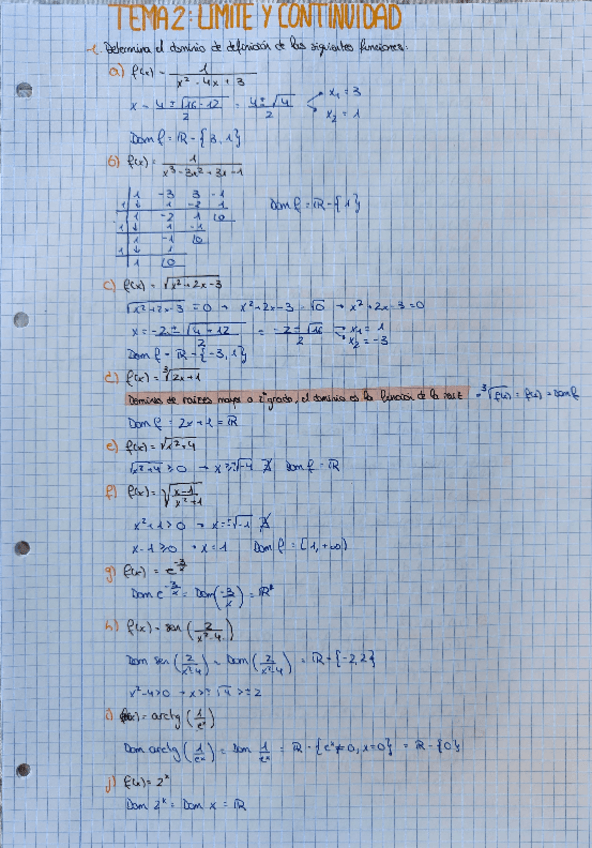 TEMA 2: LÍMITE Y CONTINUIDAD
1. Determina el dominio de definición de las siguientes funciones:
a) f(x) = 1 / (x² - 4x + 3)
x = (4 ± √(16-12)) / 2 = (4 ± √4) / 2 → x₁ = 3
x₂ = 1
Dom f = ℝ - {3, 1}
b) f(x) = 1 / (x³ - 3x² + 3x - 1)
1 -3 3 -1
1 ↓ 1 -2 1
1 -2 1 |0
1 ↓ 1 -1
1 -1 |0
1 ↓ 1
1 |0
Dom f = ℝ - {1}
c) f(x) = √(x² + 2x - 3)
√(x² + 2x - 3) = 0 → x² + 2x - 3 = √0 → x² + 2x - 3 = 0
x = (-2 ± √(4 + 12)) / 2 = (-2 ± √16) / 2 → x₁ = 1
x₂ = -3
Dom f = ℝ - {-3, 1}
d) f(x) = ³√(2x + 1)
Dominio de raíces mayor a 2º grado, el dominio es la función de la raíz = ³√f(x) = f(x) = Dom f
Dom f = 2x + 1 = ℝ
e) f(x) = √(x² + 4)
√(x² + 4) ≥ 0 → x ≥ ±√-4 ∄ Dom f = ℝ
f) f(x) = √((x - 1) / (x² + 1))
x² + 1 > 0 → x = ±√-1 ∄
x - 1 ≥ 0 → x = 1 Dom f = [1, +∞)
g) f(x) = e^(-3/x)
Dom e^(-3/x) = Dom (-3/x) = ℝ*
h) f(x) = sen (2 / (x² - 4))
Dom sen (2 / (x² - 4)) = Dom (2 / (x² - 4)) = ℝ - {-2, 2}
x² - 4 > 0 → x > ±√4 > ±2
i) f(x) = arctg (1 / eˣ)
Dom arctg (1 / eˣ) = Dom 1 / eˣ = ℝ - {eˣ ≠ 0, x = 0} = ℝ - {0}
j) f(x) = 2ˣ
Dom 2ˣ = Dom x = ℝ